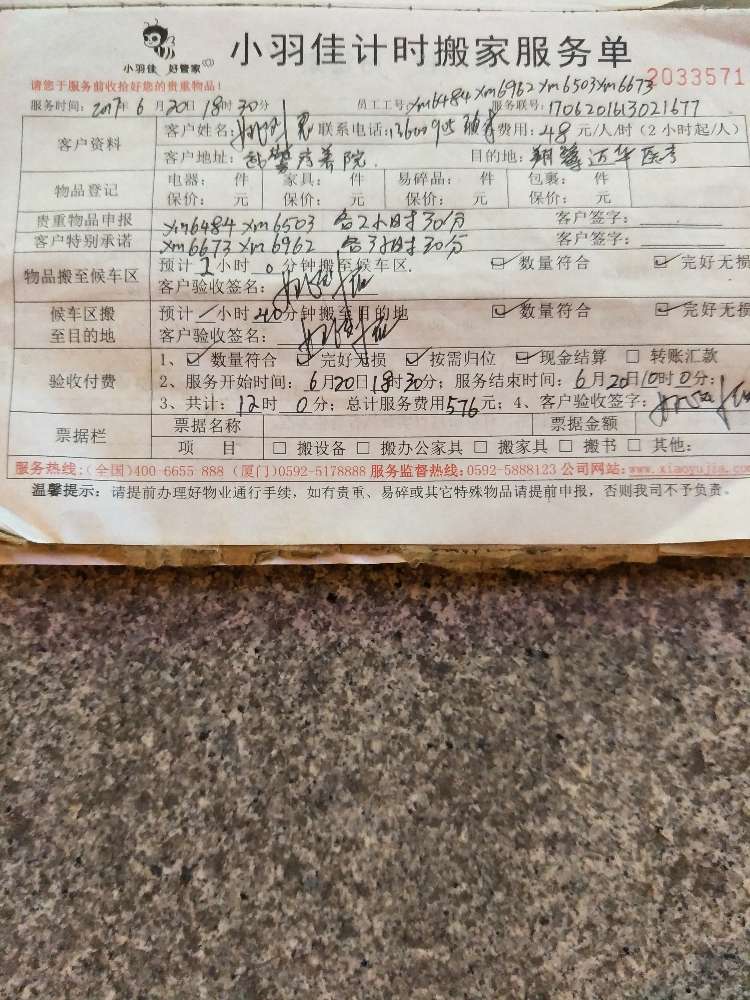 小羽佳 好管家
小羽佳计时搬家服务单
请您于服务前收拾好您的贵重物品！
xm6484 xm6962 xm6503 xm6673
2033571
服务时间：2017年 6月20日18时30分 员工工号： 服务联号：1706201613021677
客户资料
客户姓名： 联系电话： 费用：48元/人/时（2小时起/人）
客户地址： 疗养院. 目的地：
物品登记
电器： 件 家具： 件 易碎品： 件 包裹： 件
保价： 元 保价： 元 保价： 元 保价： 元
贵重物品申报 xm6484 xm6503 各2小时30分 客户签字：
客户特别承诺 xm6673 xm6962 各3小时30分 客户签字：
物品搬至候车区
预计1小时0分钟搬至候车区. ☑数量符合 ☑完好无损
客户验收签名：
候车区搬至目的地
预计1小时40分钟搬至目的地 ☑数量符合 ☑完好无损
客户验收签名：
验收付费
1、☑数量符合 ☑完好无损 ☑按需归位 ☑现金结算 □转账汇款
2、服务开始时间：6月20日18时30分；服务结束时间：6月20日10时0分；
3、共计：12时0分；总计服务费用576元；4、客户验收签字：
票据栏
票据名称 票据金额
项 目 □搬设备 □搬办公家具 □搬家具 □搬书 □其他：
服务热线：(全国)400-6655 888 (厦门)0592-5178888 服务监督热线：0592-5888123 公司网站：www.xiaoyujia.com
温馨提示：请提前办理好物业通行手续，如有贵重、易碎或其它特殊物品请提前申报，否则我司不予负责。